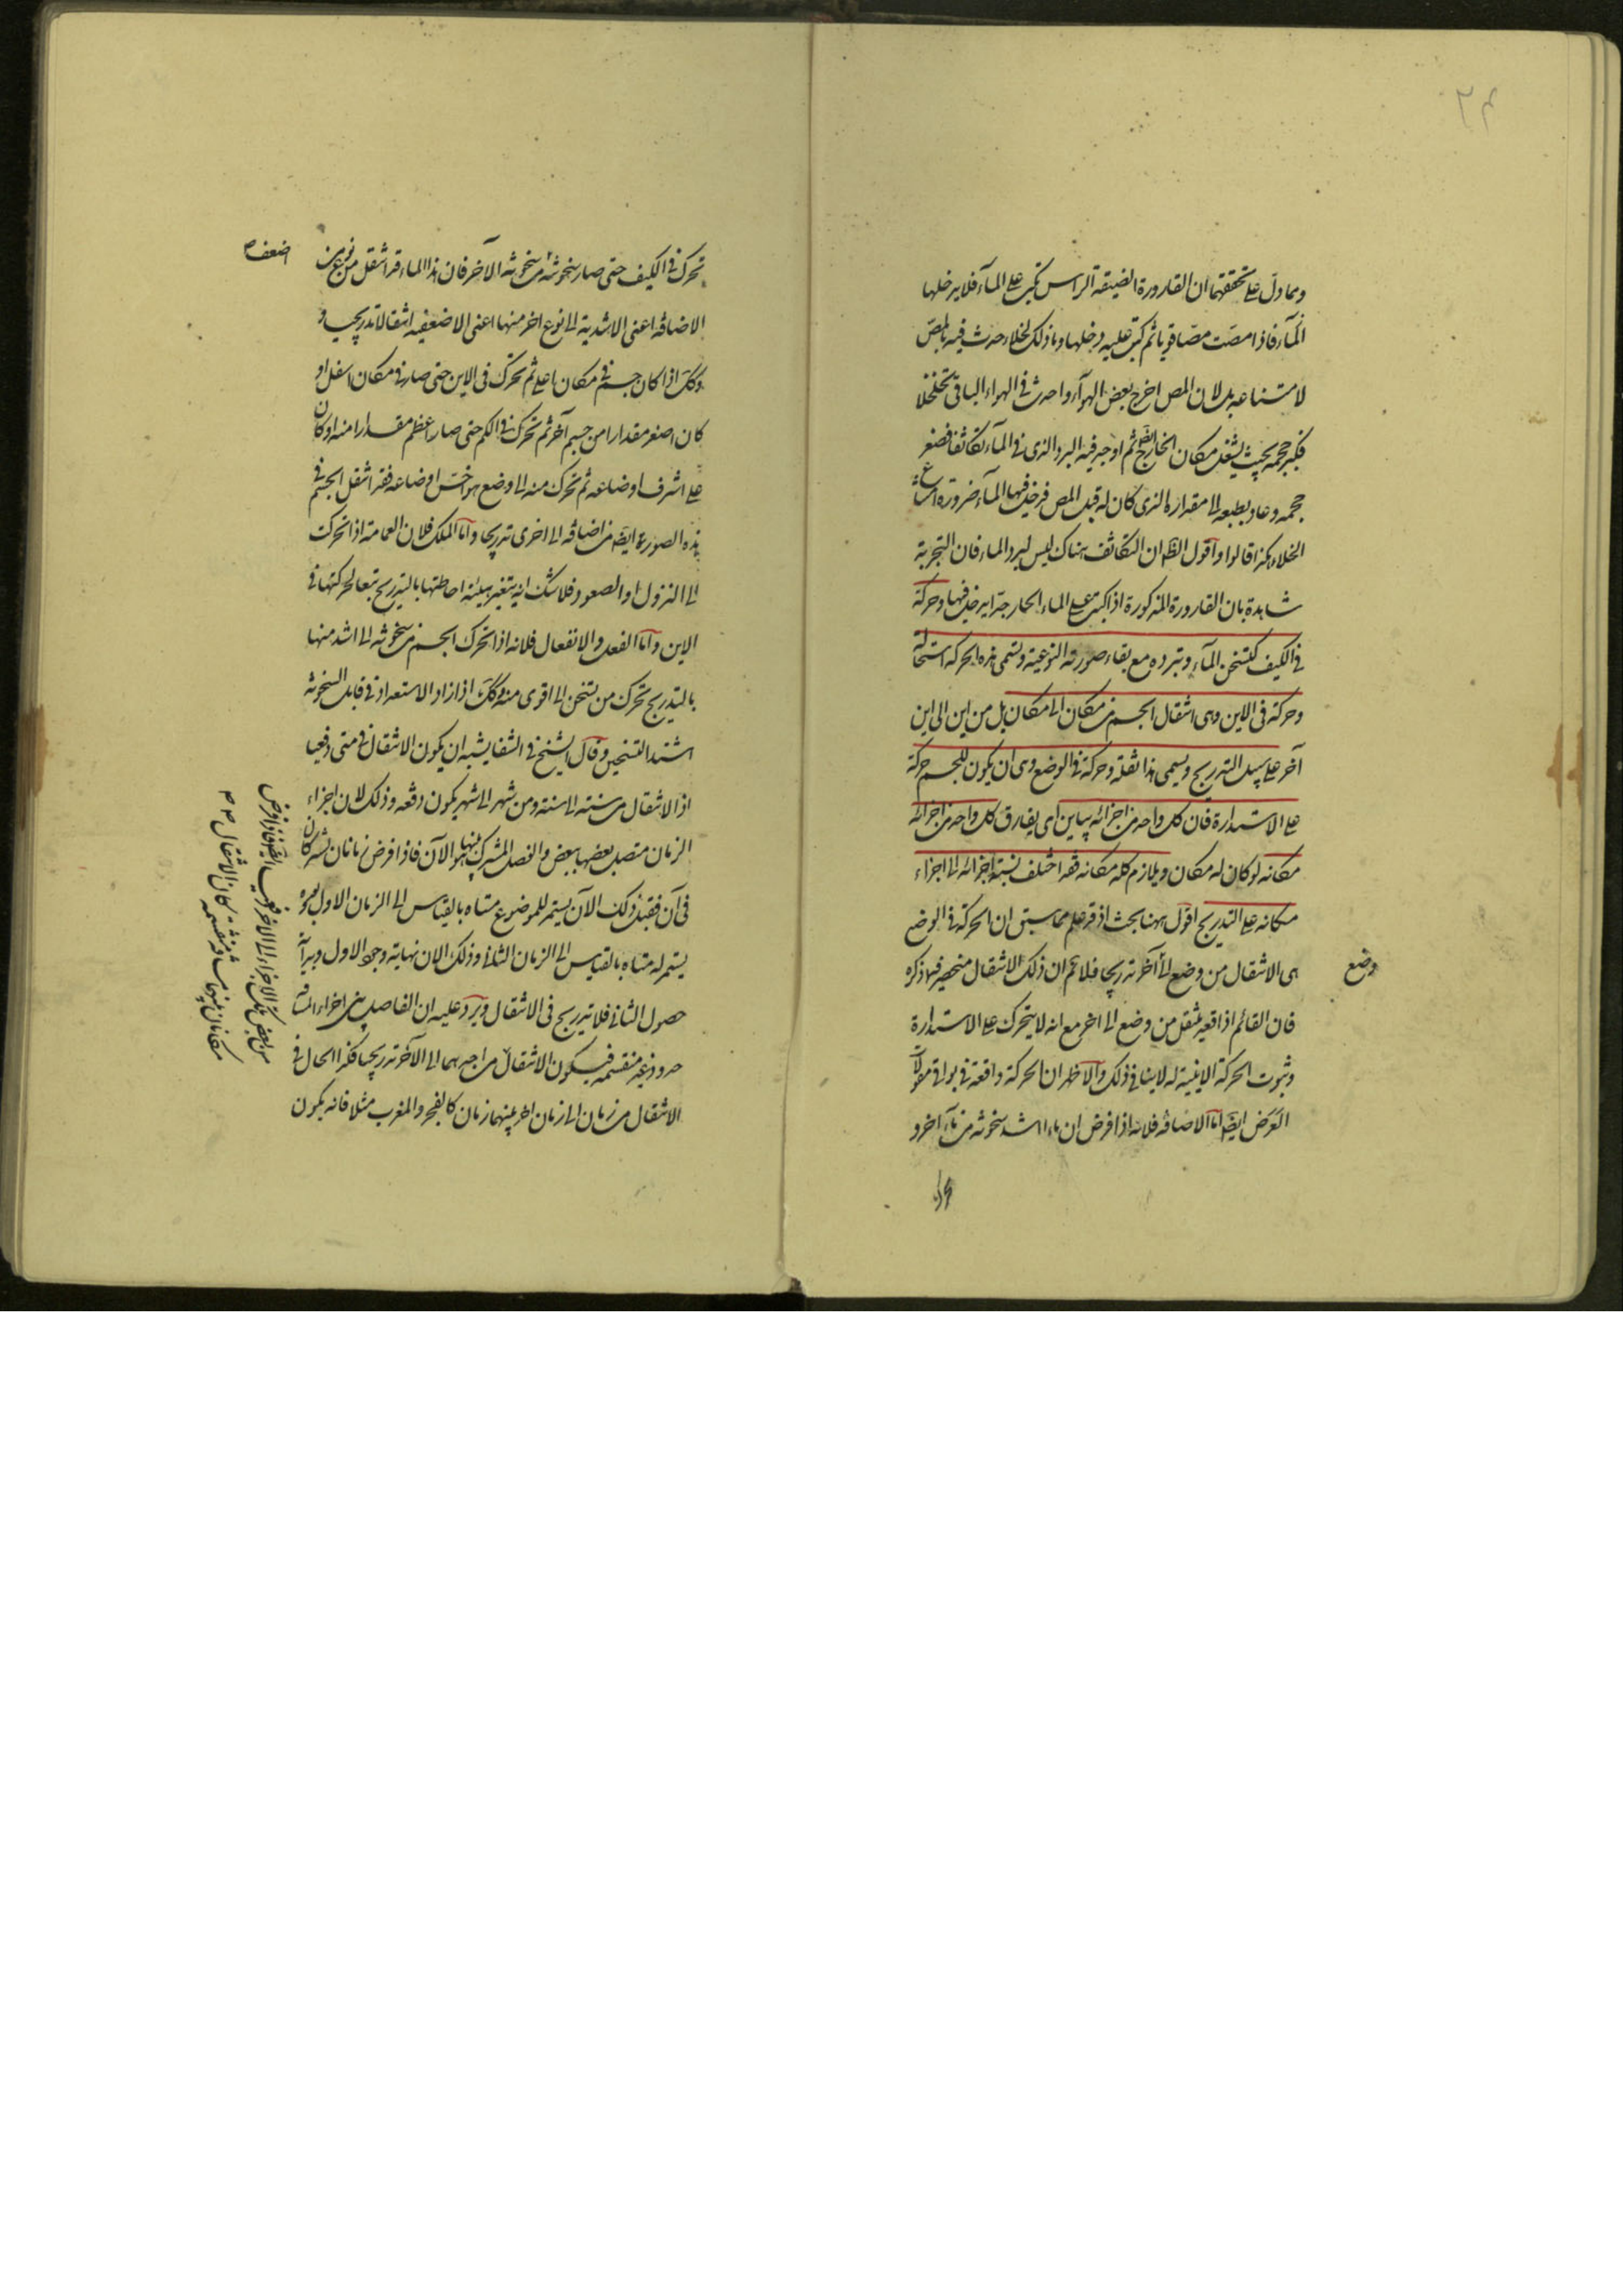 ومما دل على تحققهما ان القارورة الضيقة الراس تكب على الماء فلا يدخلها
الماء فاذا مصت مصا قويا ثم كبت عليه دخلها وما ذلك لخلاء حدث فيه بالمص
لامتناعه بل لان المص اخرج بعض الهواء واحدث في الهواء الباقي تخلخلا
فكبر حجمه بحيث يشغل مكان الخارج ايضا ثم اوجد فيه البرد الذي في الماء تكاثفا فصغر
حجمه وعاد بطبعه الى مقداره الذي كان له قبل المص فدخل فيها الماء ضرورة امتناع
الخلاء هكذا قالوا واقول الظ ان التكاثف هناك ليس لبرد الماء فان التجربة
شاهدة بان القارورة المذكورة اذا كبت على الماء الحار جدا يدخل فيها وحركة
في الكيف كتسخن الماء وتبرده مع بقاء صورته النوعية وتسمى هذه الحركة استحالة
وحركة في الاين وهي انتقال الجسم من مكان الى مكان بل من اين الى اين
آخر على سبيل التدريج ويسمى هذا نقلة وحركة في الوضع وهي ان يكون للجسم حركة
على الاستدارة فان كل واحد من اجزائه يباين اى يفارق كل واحد من اجزاء
مكانه لو كان له مكان ويلازم كله مكانه فقد اختلف نسبة اجزائه الى اجزاء
مكانه على التدريج اقول ههنا بحث اذ قد علم مما سبق ان الحركة في الوضع
هى الانتقال من وضع الى آخر تدريجا فلا نم ان ذلك الانتقال منحصر فيما ذكره
وضع
فان القائم اذا قعد ينتقل من وضع الى اخر مع انه لا يتحرك على الاستدارة
وثبوت الحركة الاينية له لا ينافي ذلك والاظهر ان الحركة واقعة في بواقي مقولات
العرض ايضا اما الاضافة فلانه اذا فرض ان ماء اشد سخونة من ماء آخر و
تحرك في الكيف حتى صار سخونته اضعف من سخونة الآخر فان هذا الماء قد انتقل من نوع من
اضعف
الاضافة اعنى الاشدية الى نوع اخر منها اعنى الاضعفية انتقالا تدريجيا و
وكك اذا كان جسم في مكان اعلى ثم تحرك في الاين حتى صار في مكان اسفل او
كان اصغر مقدارا من جسم آخر ثم تحرك في الكم حتى صار اعظم مقدارا منه او كان
على اشرف اوضاعه ثم تحرك منه الى وضع هو اخس اوضاعه فقد انتقل الجسم في
هذه الصور ايضا من اضافة الى اخرى تدريجا واما الملك فلان العمامة اذا تحركت
الى النزول او الصعود فلا شك انه يتغير هيئة احاطتها بالتدريج تبعا لحركتها في
الاين واما الفعل والانفعال فلانه اذا تحرك الجسم من سخونة الى اشد منها
بالتدريج تحرك من تسخن الى اقوى منه وكك اذا ازداد الاستعداد في قابل السخونة
اشتد التسخين وقال الشيخ في الشفا يشبه ان يكون الانتقال في متى دفعيا
اذ الانتقال من سنة الى سنة ومن شهر الى شهر يكون دفعة وذلك لان اجزاء
الزمان متصل بعضها ببعض والفصل المشترك بينها هو الآن فاذا فرض زمانان يشتركان
في آن فقبل ذلك الآن يستمر للموضوع متاه بالقياس الى الزمان الاول وبعده
يستمر له متاه بالقياس الى الزمان الثاني وذلك الان نهاية وجود الاول وبداية
حصول الثاني فلا تدريج في الانتقال ويرد عليه ان الفاصل بين اجزاء المسافة
حدود غير منقسمة فيكون الانتقال من احديهما الى الآخر تدريجيا كذا الحال في
الانتقال من زمان الى زمان اخر بينهما زمان كالفجر والمغرب مثلا فانه يكون
من بعض تلك الاجزاء الى الاخر دفعيا ايضا فاذا فرض
مكانان بينهما مسافة منقسمة كان الانتقال